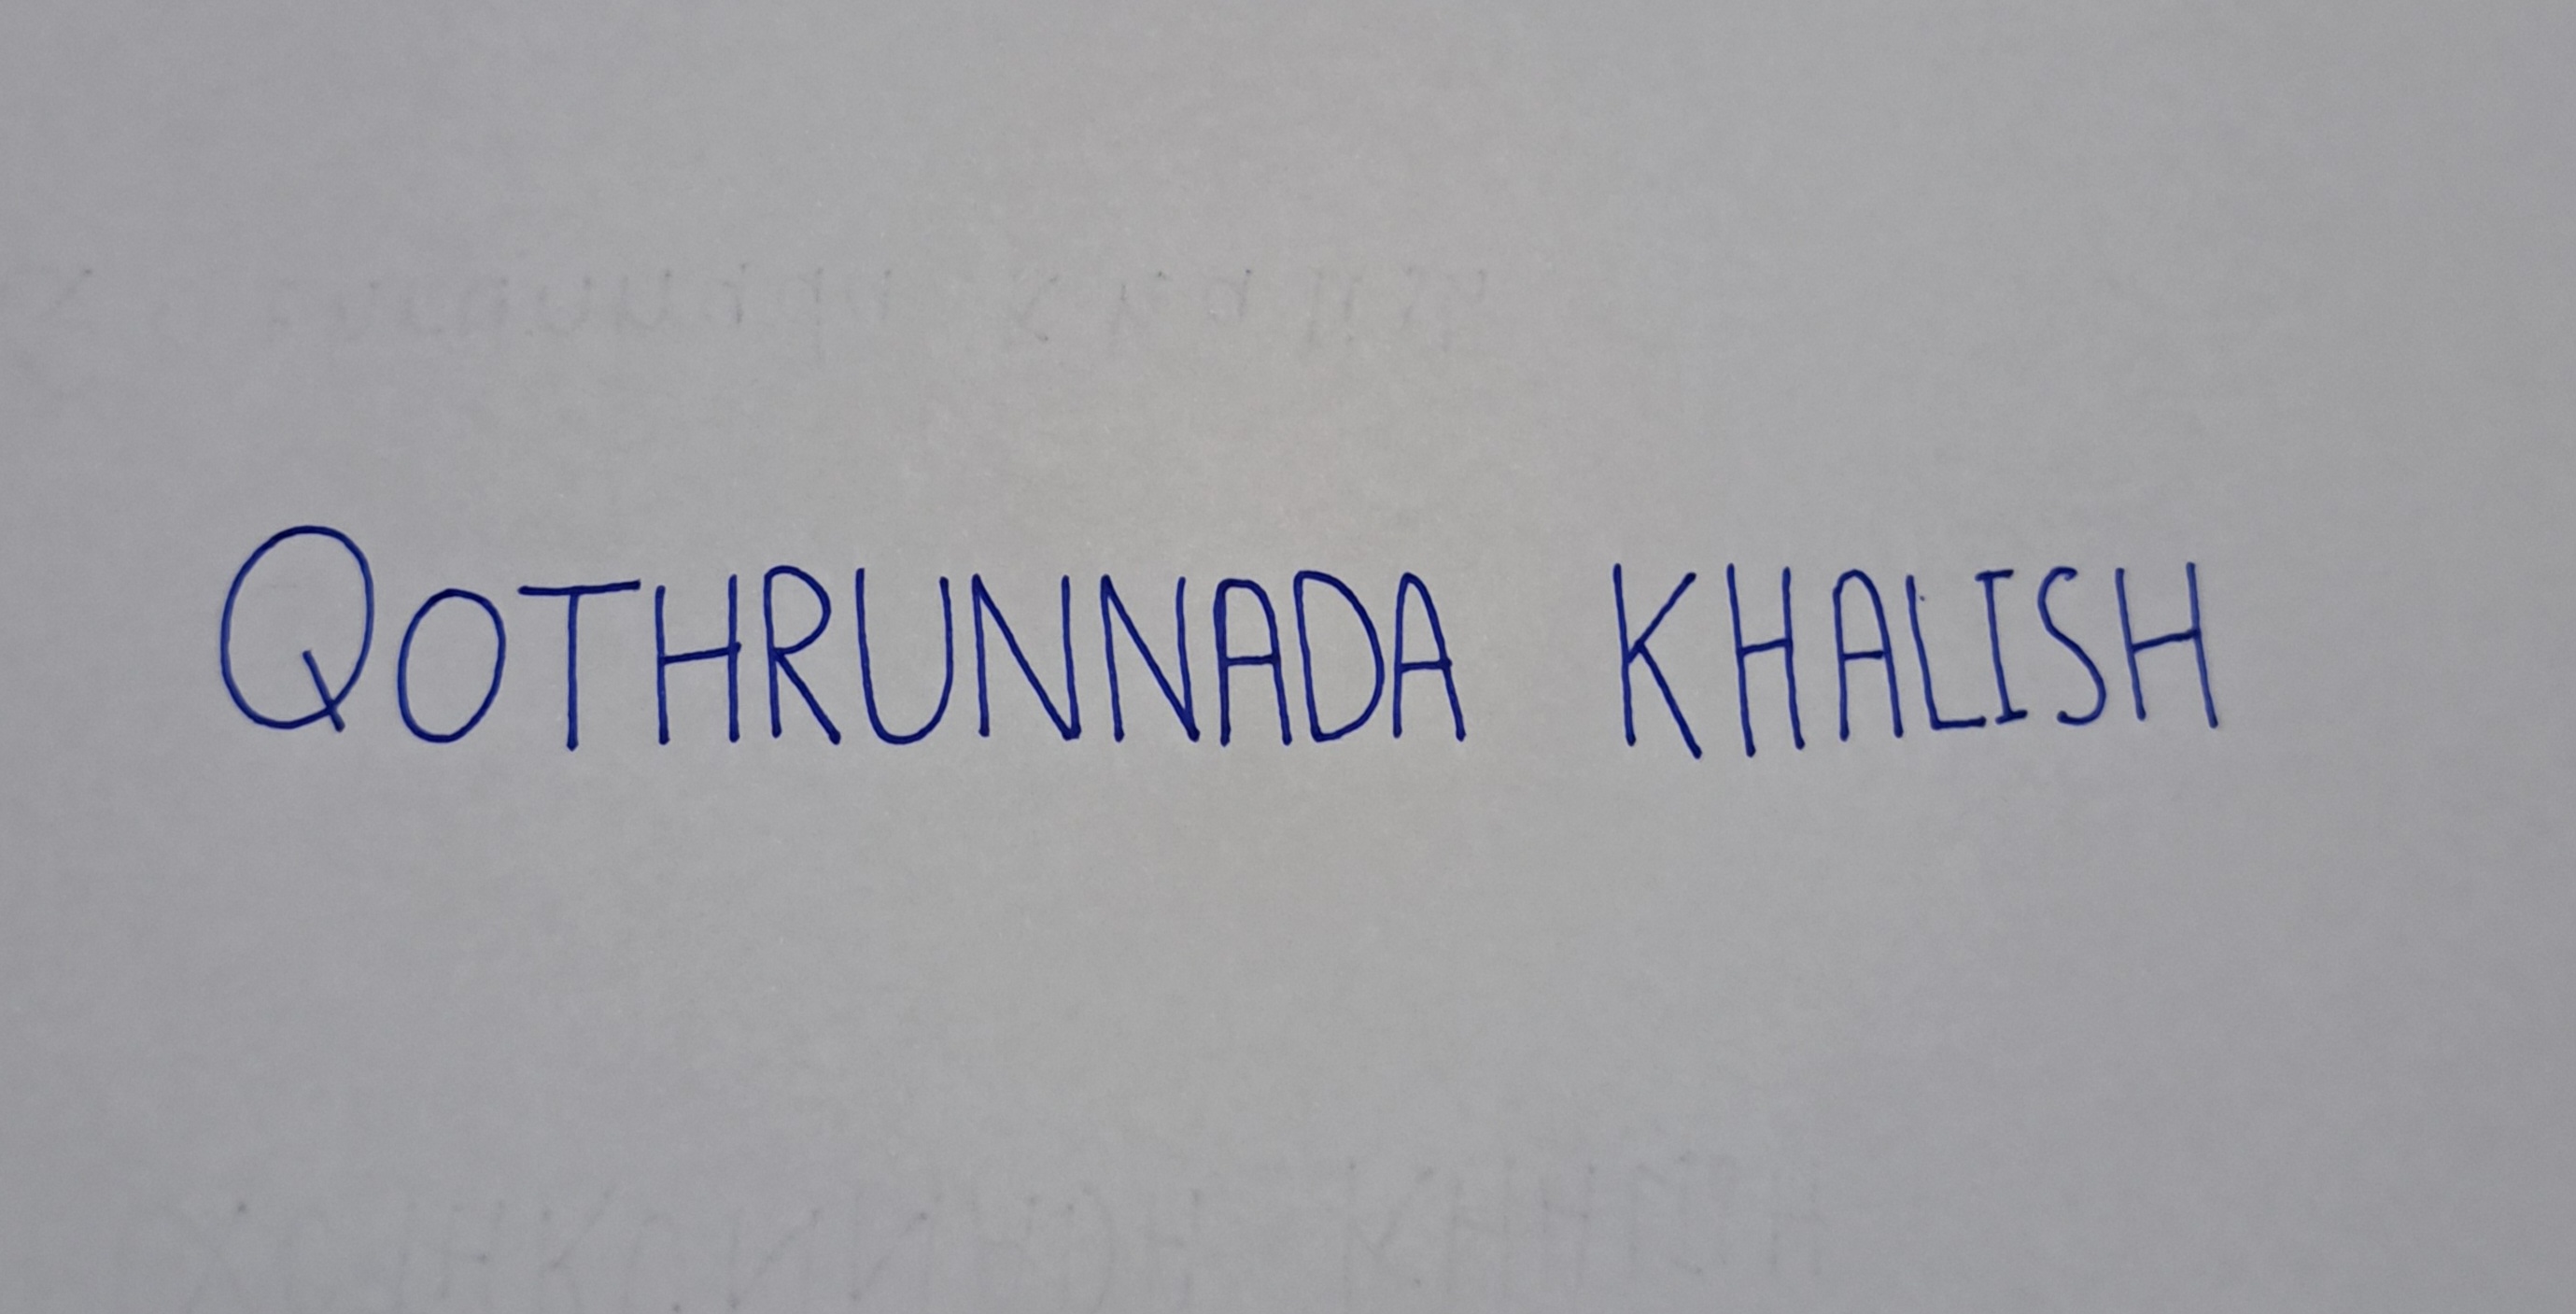 QOTHRUNNADA KHALISH